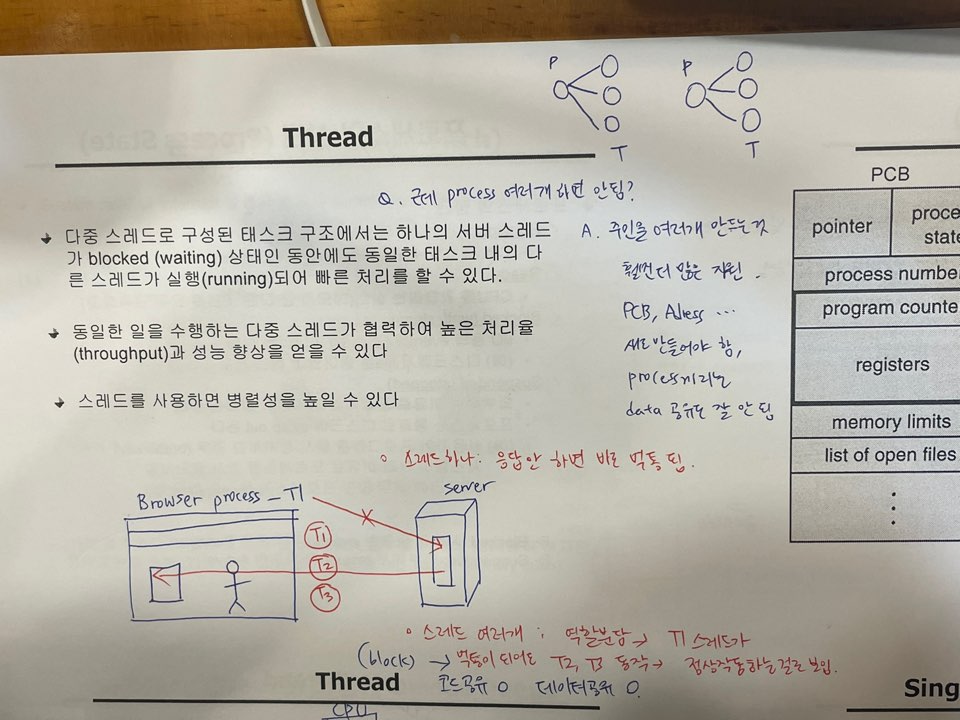 P
P
T
T
Thread
Q. 근데 process 여러개 하면 안됨?
다중 스레드로 구성된 태스크 구조에서는 하나의 서버 스레드
가 blocked (waiting) 상태인 동안에도 동일한 태스크 내의 다
른 스레드가 실행(running)되어 빠른 처리를 할 수 있다.
동일한 일을 수행하는 다중 스레드가 협력하여 높은 처리율
(throughput)과 성능 향상을 얻을 수 있다
스레드를 사용하면 병렬성을 높일 수 있다
A. 주인을 여러개 만드는 것
훨씬 더 많은 자원.
PCB, ...
새로 만들어야 함,
process끼리는
data 공유도 잘 안됨
PCB
pointer
proce
state
process numbe
program counte
registers
memory limits
list of open files
스레드 하나: 응답 안 하면 바로 먹통 됨.
Browser process - T1
server
T1
T2
T3
스레드 여러개 : 역할분담 → T1 스레드가
(block) → 먹통이 되어도 T2, T3 동작 → 정상작동하는 걸로 보임.
Thread
코드공유 O 데이터공유 O.
Sing
CPU